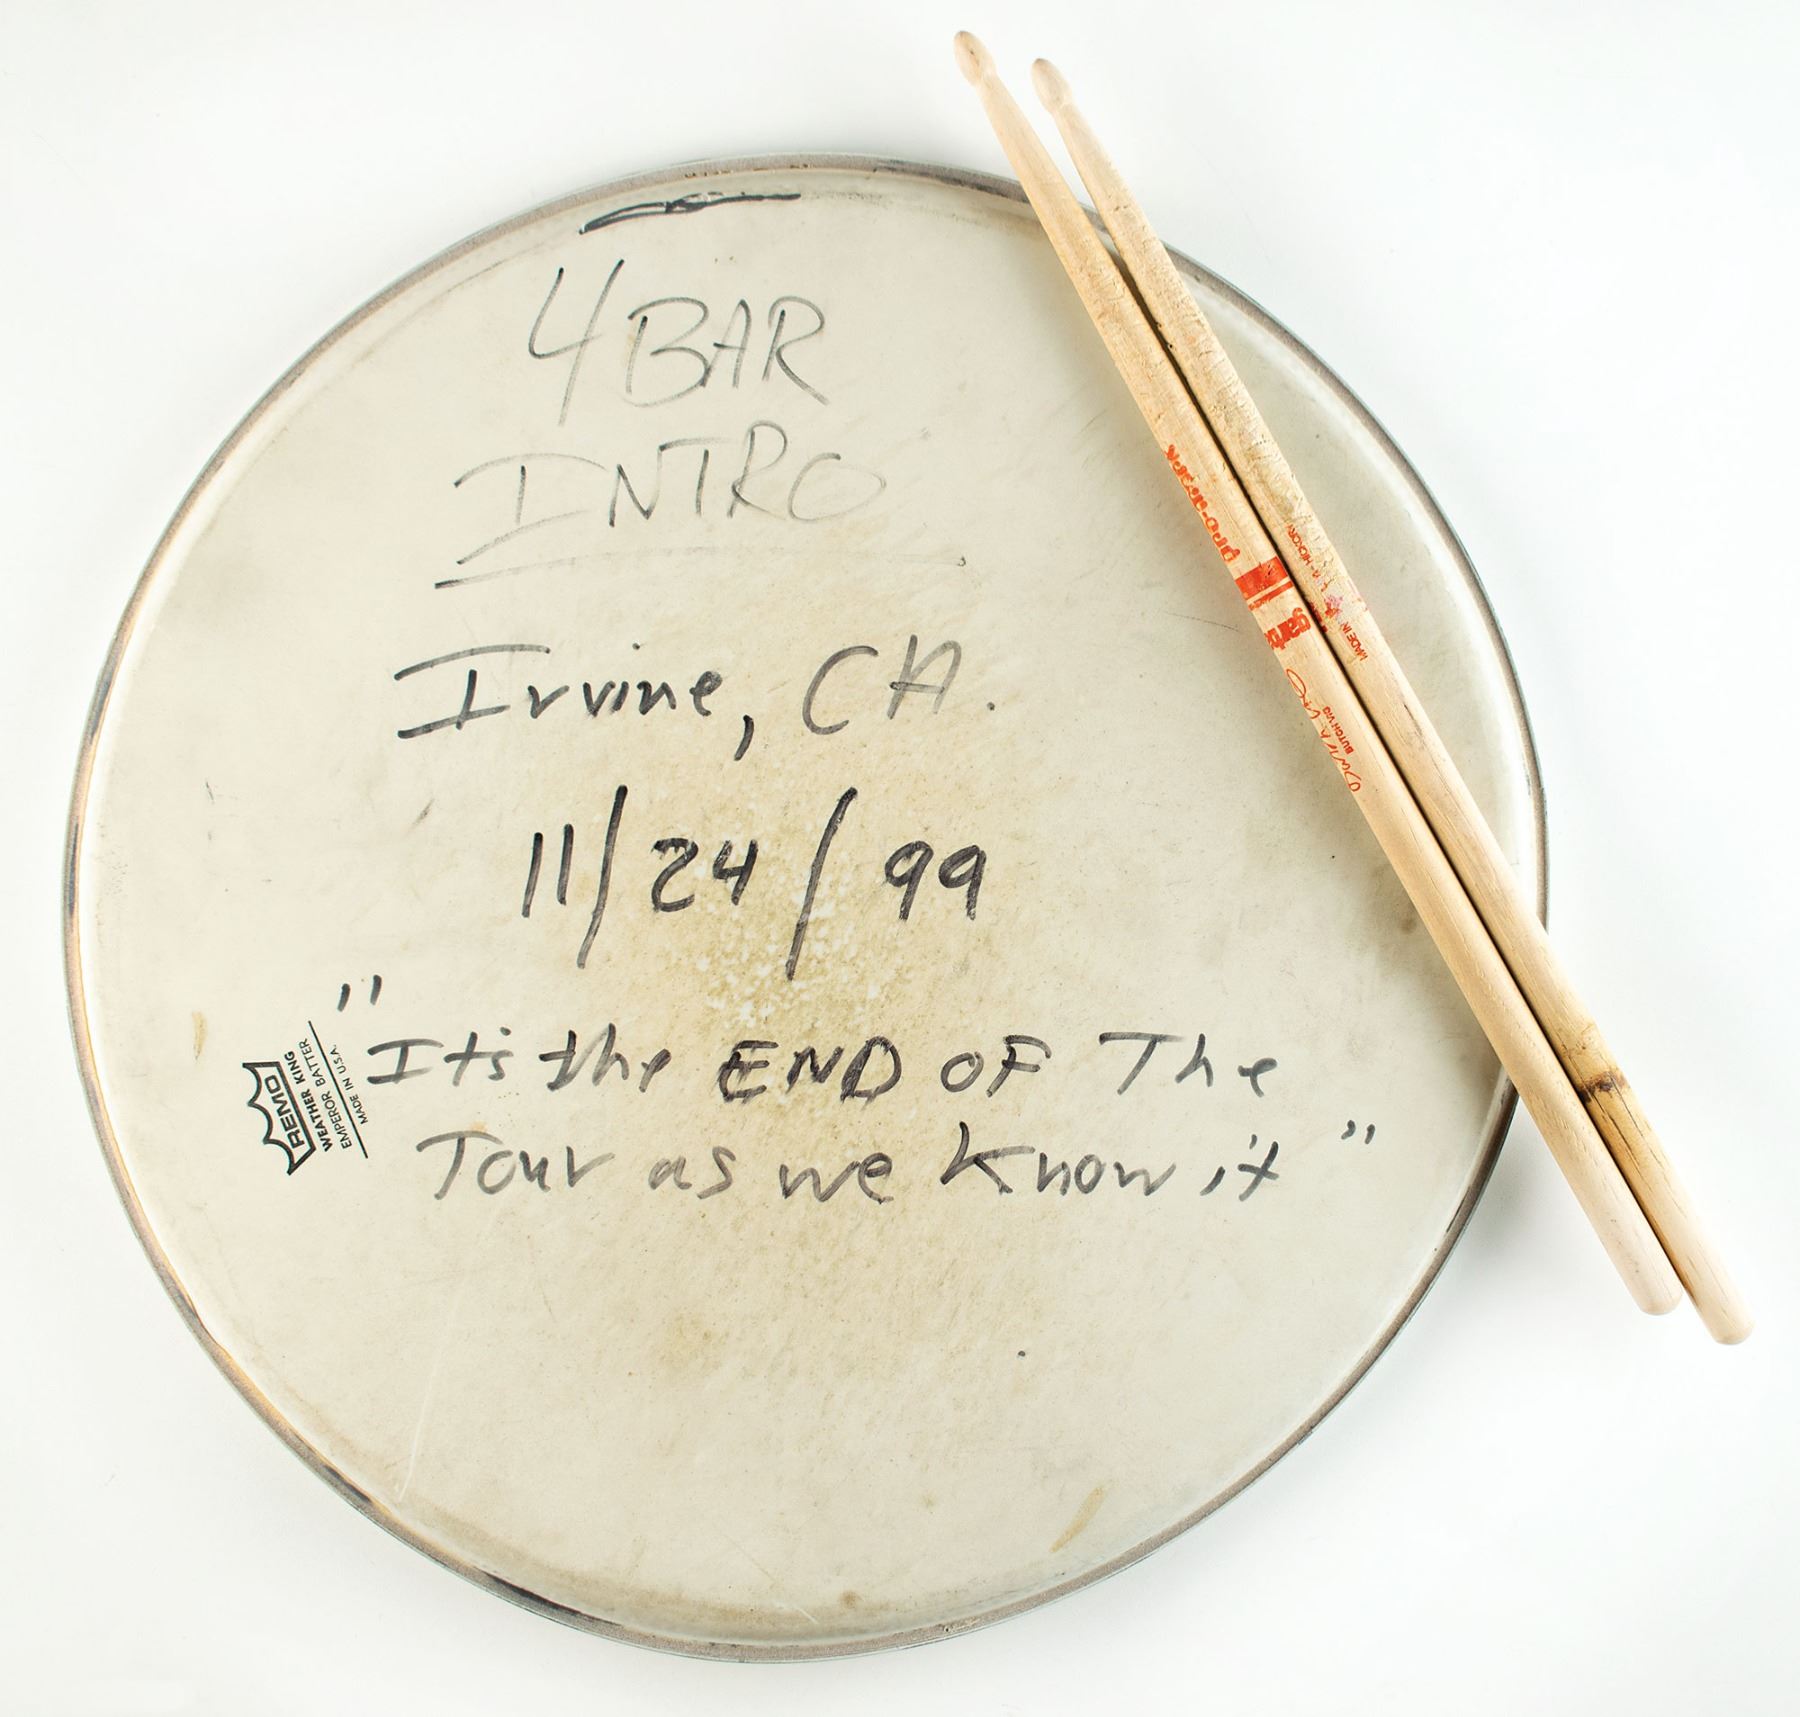 4 BAR
INTRO
Irvine, CA.
11/24/99
"It's the END OF The
Tour as we know it"
REMO
WEATHER KING
EMPEROR BATTER
MADE IN U.S.A.
pro-mark
garbage
BUTCH VIG
HICKORY
MADE IN